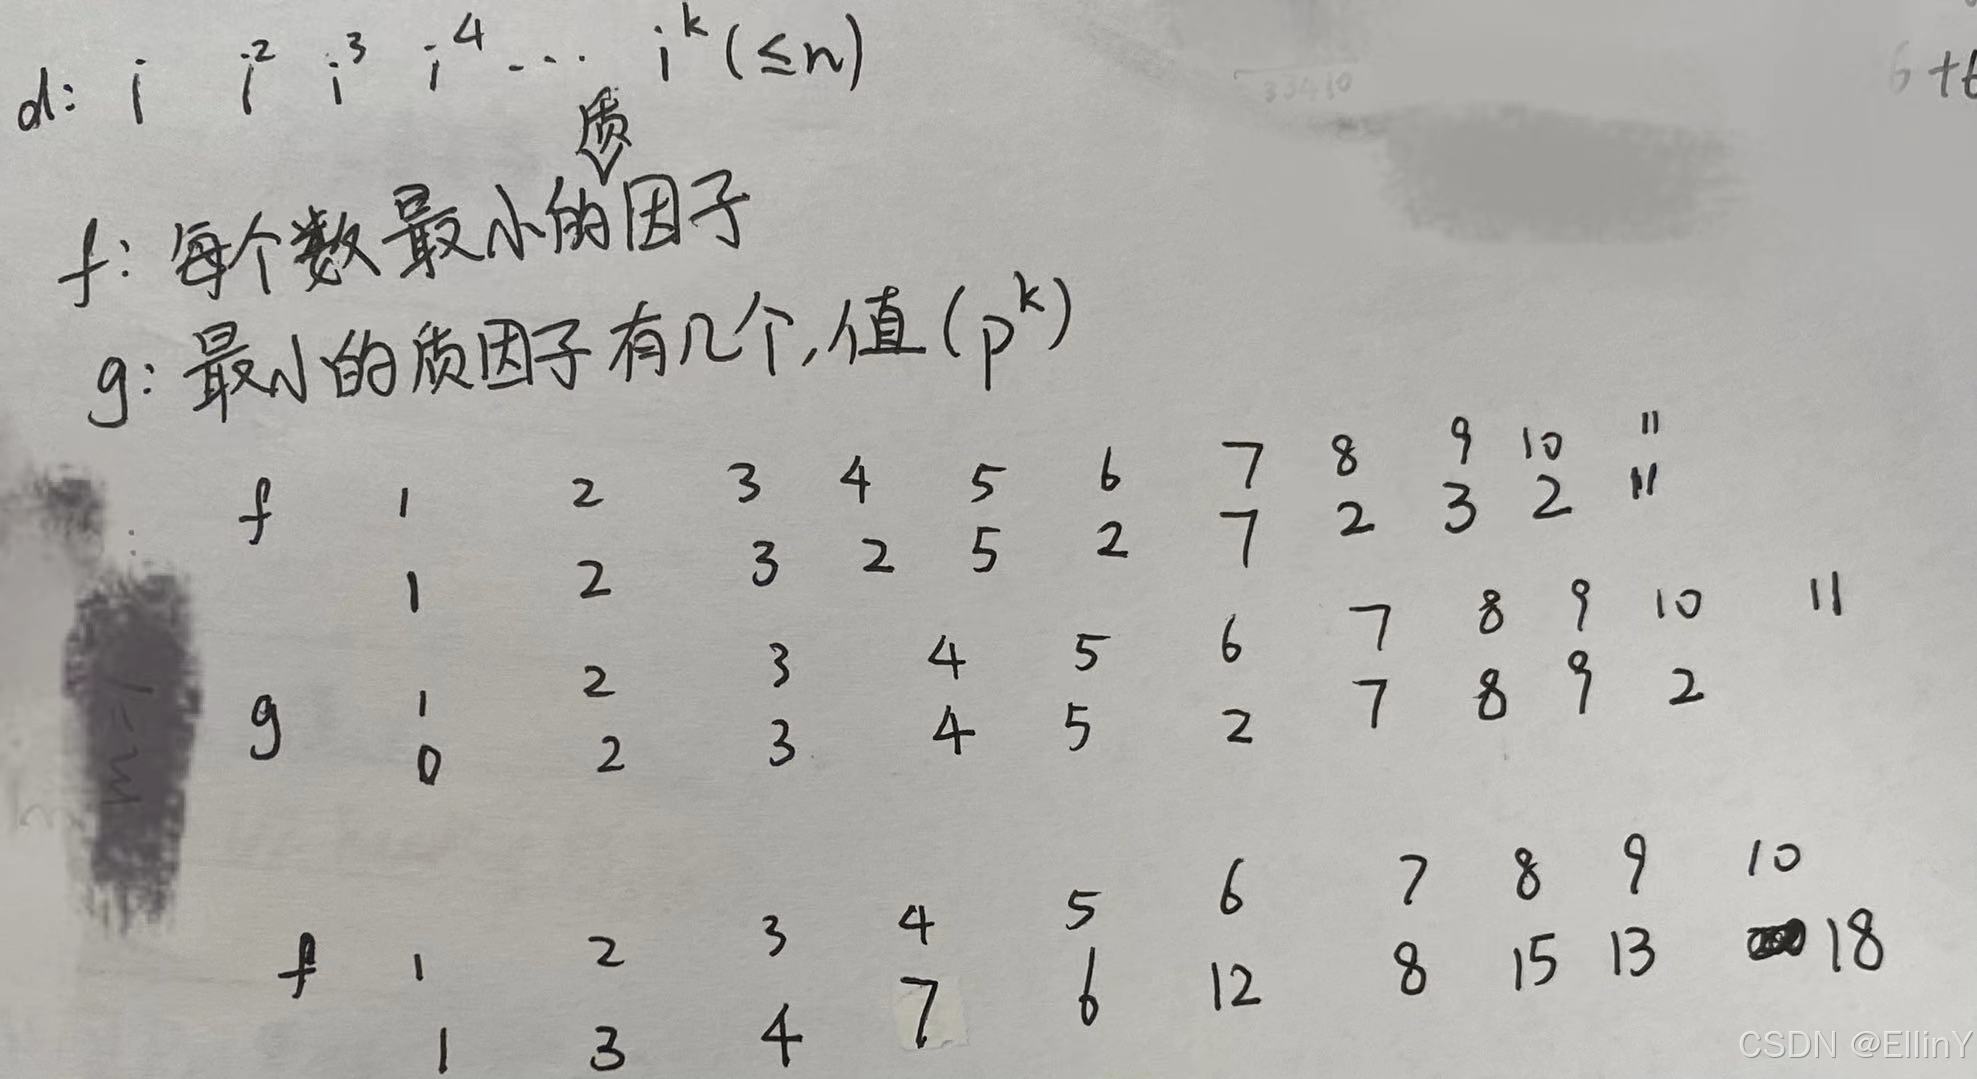 d: i i² i³ i⁴ ... iᵏ (≤n)
质
f: 每个数最小的因子
g: 最小的质因子有几个,值(pᵏ)
f 1 2 3 4 5 6 7 8 9 10 11
1 2 3 2 5 2 7 2 3 2 11
g 1 2 3 4 5 6 7 8 9 10 11
0 2 3 4 5 2 7 8 9 2
f 1 2 3 4 5 6 7 8 9 10
1 3 4 7 6 12 8 15 13 18
CSDN @EllinY